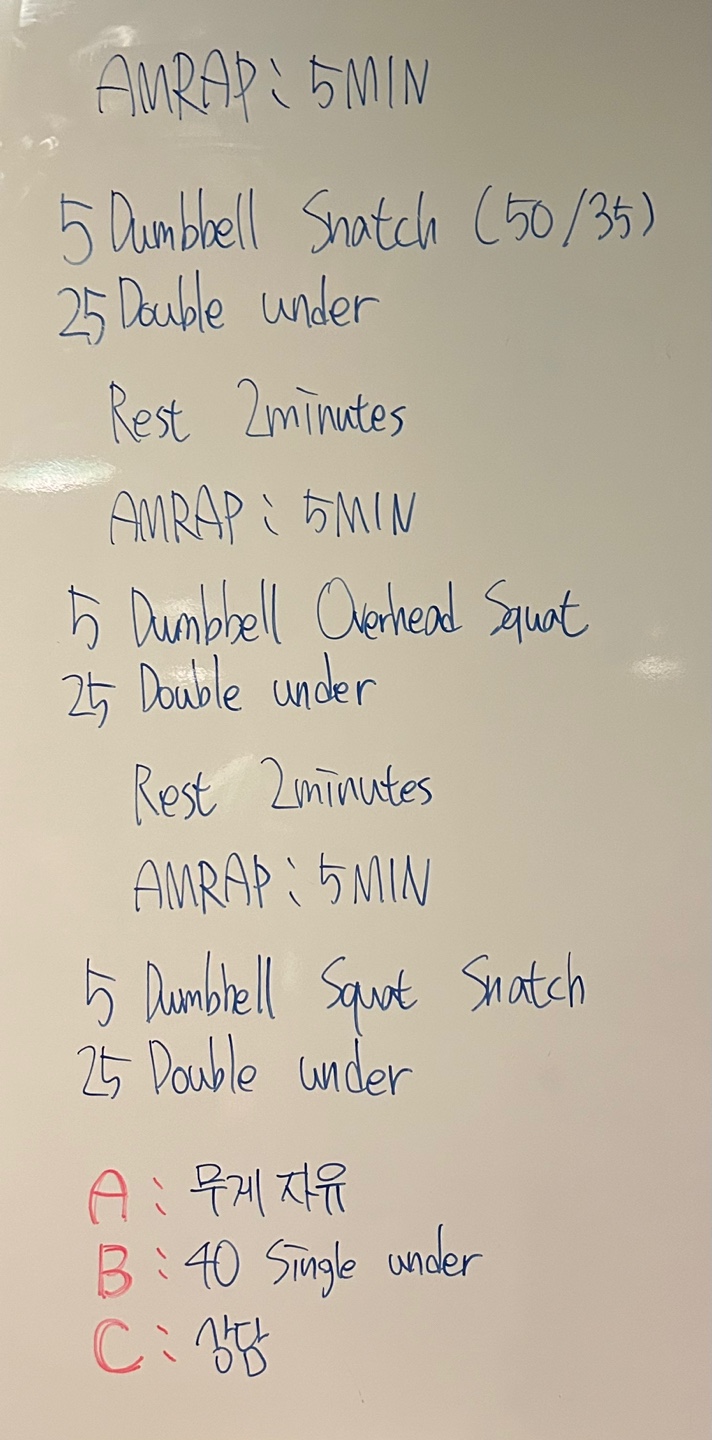 AMRAP: 5MIN
5 Dumbbell Snatch (50/35)
25 Double under
Rest 2minutes
AMRAP: 5MIN
5 Dumbbell Overhead Squat
25 Double under
Rest 2minutes
AMRAP: 5MIN
5 Dumbbell Squat Snatch
25 Double under
A: 무게 자유
B: 40 Single under
C: 상담